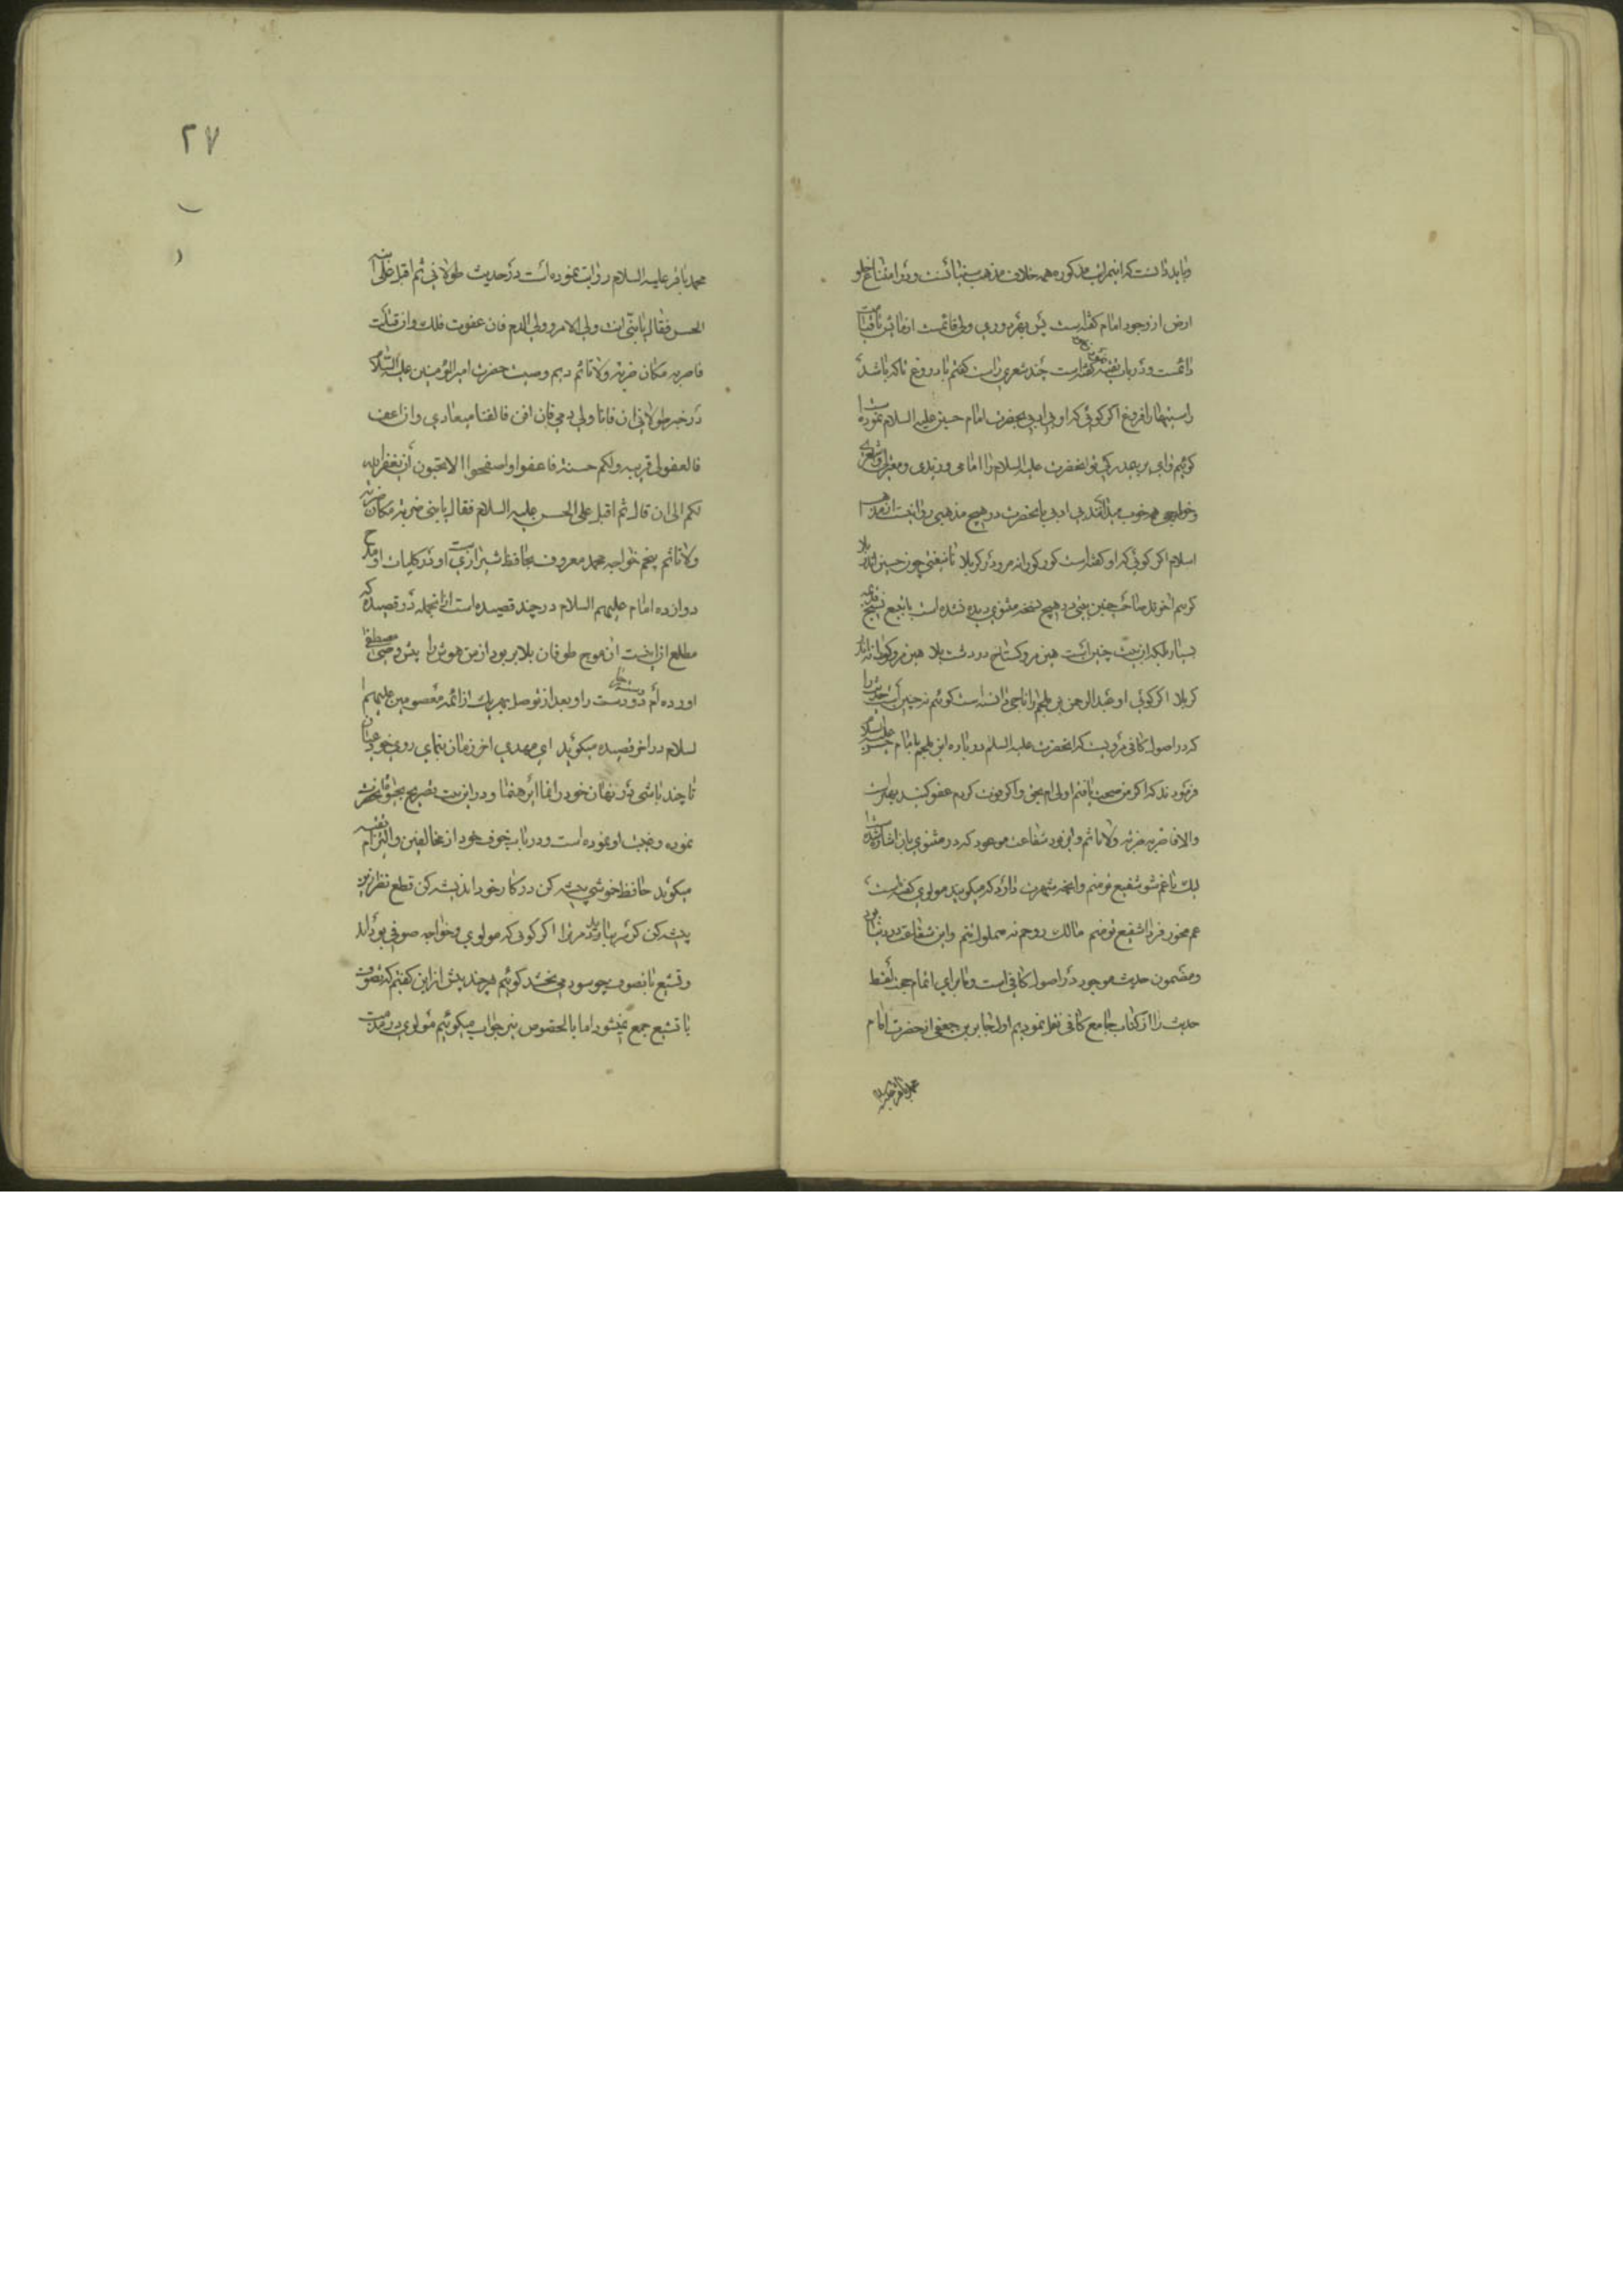 و باید دانست که این مراتب مذکوره همه خلاف مذهب سنیانست و در امتناع خلو
ارض از وجود امام گفته است پس بهر دوری ولی قائمست ازمایش تا قیامت
دائمست و در باب تقیه گفته است چند شعری راست گفتم با دروغ تا که باشد
راستیها را فروغ اگر گوئی که او بی ادبی بحضرت امام حسین علیه السلام نموده است
گوئیم
خوب میدانند بی ادبی بانحضرت در هیچ مذهبی روا نیست از مذهب
اسلام اگر گوئی که او گفته است کور کورانه مرو در کربلا تا نیفتی چون حسین اندر بلا
گوئیم اخوند ملا چنین بیتی در هیچ نسخه مثنوی دیده نشده است با تتبع نسخ قدیمه
بسیار بلکه این بیت چنین است هین مرو گستاخ در دشت بلا هین مرو کورانه اندر
کربلا اگر گوئی او عبدالرحمن بن ملجم را ناجی دانسته است گوئیم نه چنین است حدیث را
که در اصول کافی مرویست که انحضرت علیه السلام در باره ابن ملجم بامام حسن علیه السلام
فرمودند که اگر من صحت یافتم اولی ام بحق و اگر فوت کردم عفو کنید بهتر است
والا فاضربه ضربة ولا تاثم و این بود شفاعت موعود که در مثنوی بان اشاره شده است
لیک بی غم شو شفیع تو منم و انچه شهرت دارد که میگویند مولوی گفته است
غم مخور فردا شفیع تو منم مالک روحم نه مملوک تنم و این شفاعت در دنیا بود
و مضمون حدیث موجود در اصول کافی است و ما برای اتمام حجت لفظ
حدیث را از کتاب جامع کافی نقل نمودیم اول جابر بن جعفی از حضرت امام
محمد باقر علیه
۲۷
محمد باقر علیه السلام روایت نموده است در حدیث طولانی ثم اقبل علی ابنه
الحسن فقال یا بنی انت ولی الامر و ولی الدم فان عفوت فلک و ان قتلت
فاضربه مکان ضربة ولا تاثم دیم وصیت حضرت امیر المؤمنین علیه السلام
در خبر طولانی ان فانا ولی دمی فان افن فالفنا میعادی و ان اعف
فالعفو لی قربه و لکم حسنة فاعفوا و اصفحوا الا تحبون ان یغفر الله
لکم الی ان قال ثم اقبل علی الحسن علیه السلام فقال یا بنی ضربة مکان ضربة
ولا تاثم پنجم خواجه محمد معروف بحافظ شیرازیست او در کلیات او مدح
دوازده امام علیهم السلام در چند قصیده است از انجمله در قصیده که
مطلع ان اینست ان موج طوفان بلا بربود از من هوش را پیش وصی مصطفی
اورده ام دو دست را و بعد از توسل بهر یک از ائمه معصومین علیهم
السلام در اخر قصیده میگوید ای مهدی اخر زمان بنمای روی خود عیان
تا چند باشی در نهان خود را نما ای رهنما و در این بیت تصریح بحیوة انحضرت
نموده و غیبت او نموده است و در باب خوف خود از مخالفین و التزام تقیه
میگوید حافظ خوشی پیشه کن در کار خود اندیشه کن قطع نظر زین
پیشه کن مرزا اگر گوئی که مولوی و خواجه صوفی بوده اند
و تشیع با تصوف چه سود می بخشد گوئیم هر چند پیش از این گفتیم که تصوف
با تشیع جمع نمیشود اما بالخصوص نیز جواب میگوئیم مولوی در مذمت